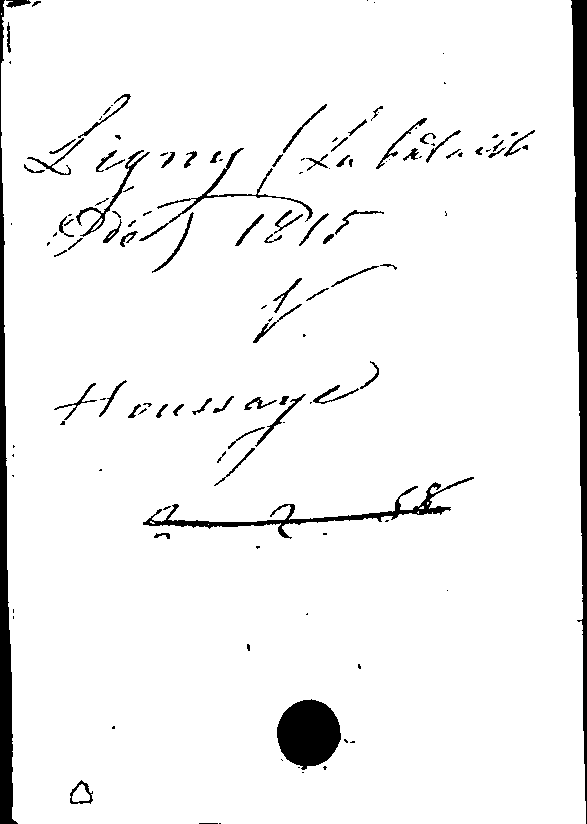 Ligny (La bataille
de) 1815
V.
Houssaye